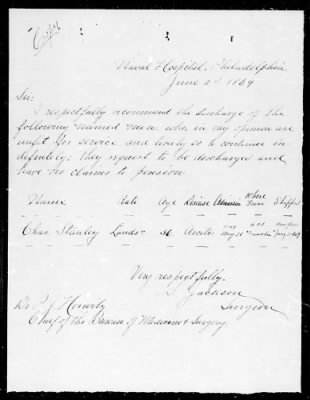 Copy
Naval Hospital, Philadelphia
June 2d 1869
Sir:
I respectfully recommend the discharge of the
following named men who, in my opinion are
unfit for service and likely so to continue in-
definitely. they request to be discharged and
have no claims to pension.
Name Rate Age Disease Admission Where From Shipped
Chas. Stanley Lands- Ascites 1869 U.S.S. "Franklin"
Very respectfully,
Jackson
Surgeon
Dr P. J. Horwitz
Chief of the Bureau of Medicine & Surgery